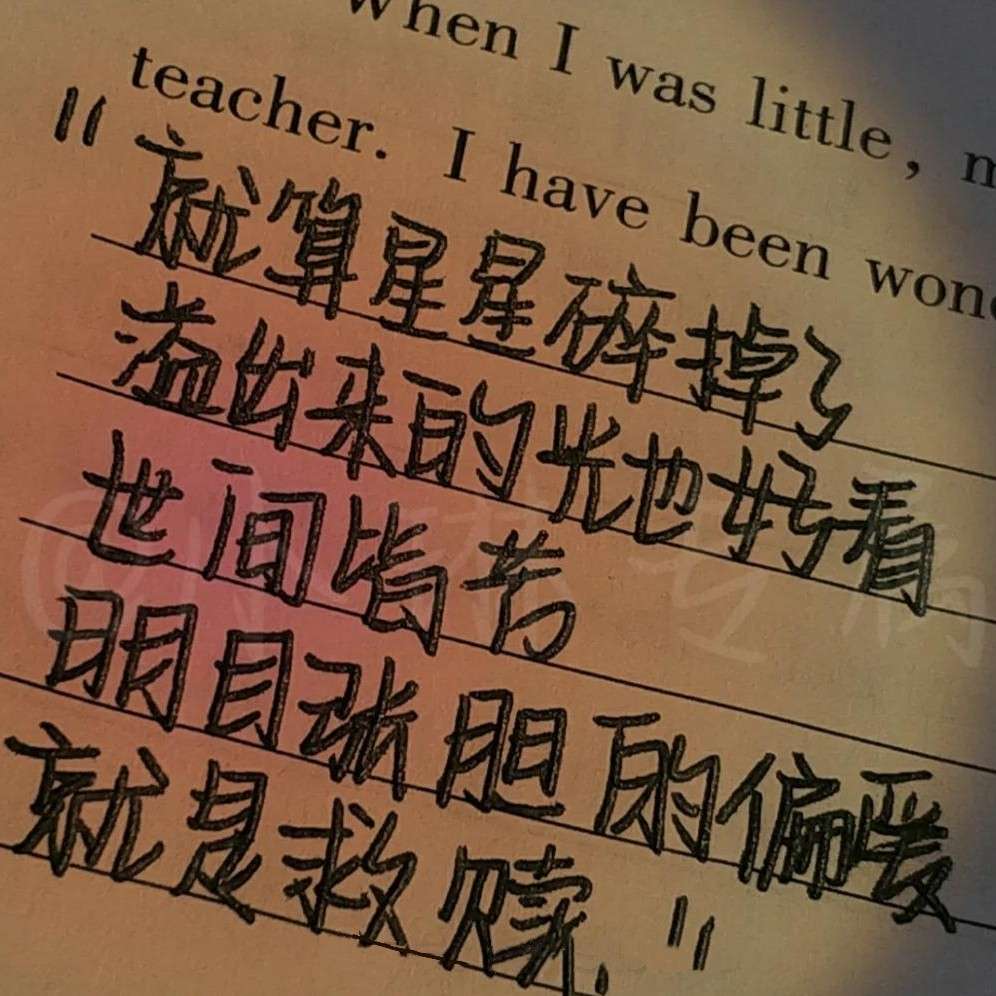 When I was little, m
teacher. I have been won
"就算星星碎掉了
溢出来的光也好看
世间皆苦
明目张胆的偏暖
就是救赎."